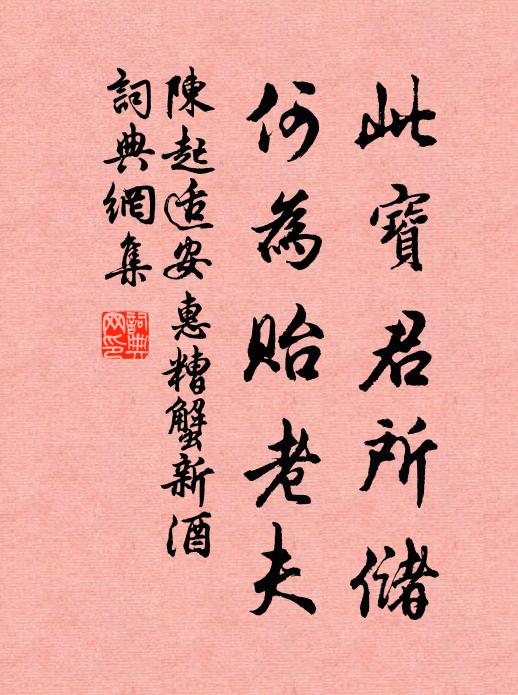 此寶君所儲
何為貽老夫
陳起适安惠糟蟹新酒
詞典網集
詞典網印